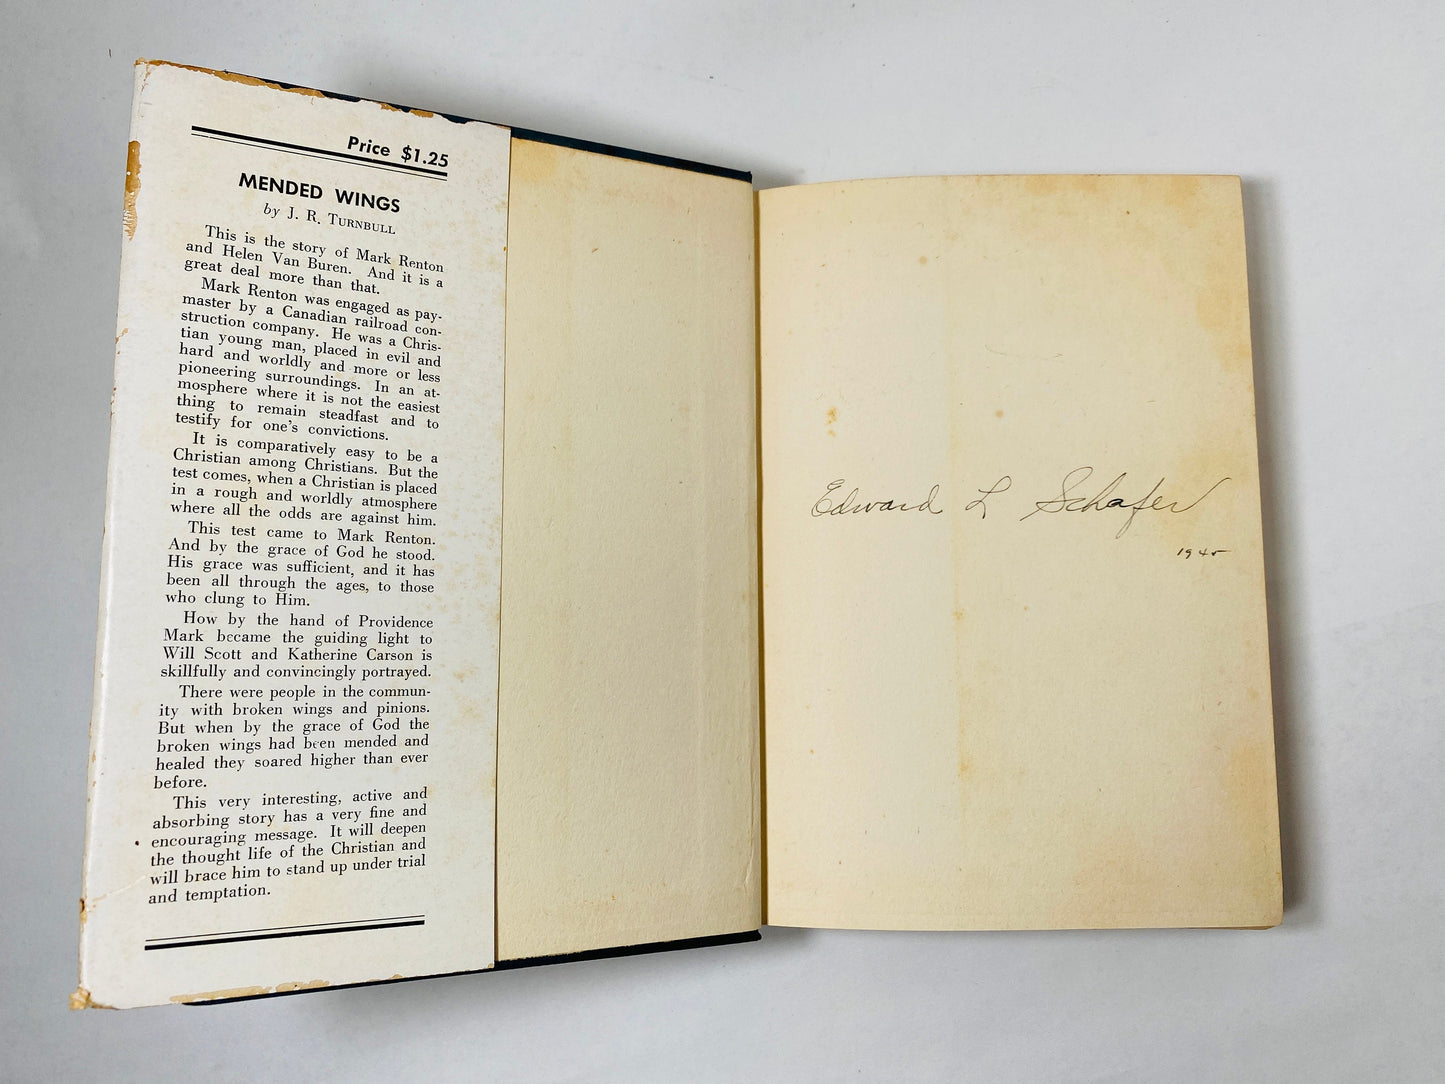 Price $1.25
MENDED WINGS
by J. R. TURNBULL
This is the story of Mark Renton
and Helen Van Buren. And it is a
great deal more than that.
Mark Renton was engaged as pay-
master by a Canadian railroad con-
struction company. He was a Chris-
tian young man, placed in evil and
hard and worldly and more or less
pioneering surroundings. In an at-
mosphere where it is not the easiest
thing to remain steadfast and to
testify for one's convictions.
It is comparatively easy to be a
Christian among Christians. But the
test comes, when a Christian is placed
in a rough and worldly atmosphere
where all the odds are against him.
This test came to Mark Renton.
And by the grace of God he stood.
His grace was sufficient, and it has
been all through the ages, to those
who clung to Him.
How by the hand of Providence
Mark became the guiding light to
Will Scott and Katherine Carson is
skillfully and convincingly portrayed.
There were people in the commun-
ity with broken wings and pinions.
But when by the grace of God the
broken wings had been mended and
healed they soared higher than ever
before.
This very interesting, active and
absorbing story has a very fine and
encouraging message. It will deepen
the thought life of the Christian and
will brace him to stand up under trial
and temptation.
Edward L Schafer
1945